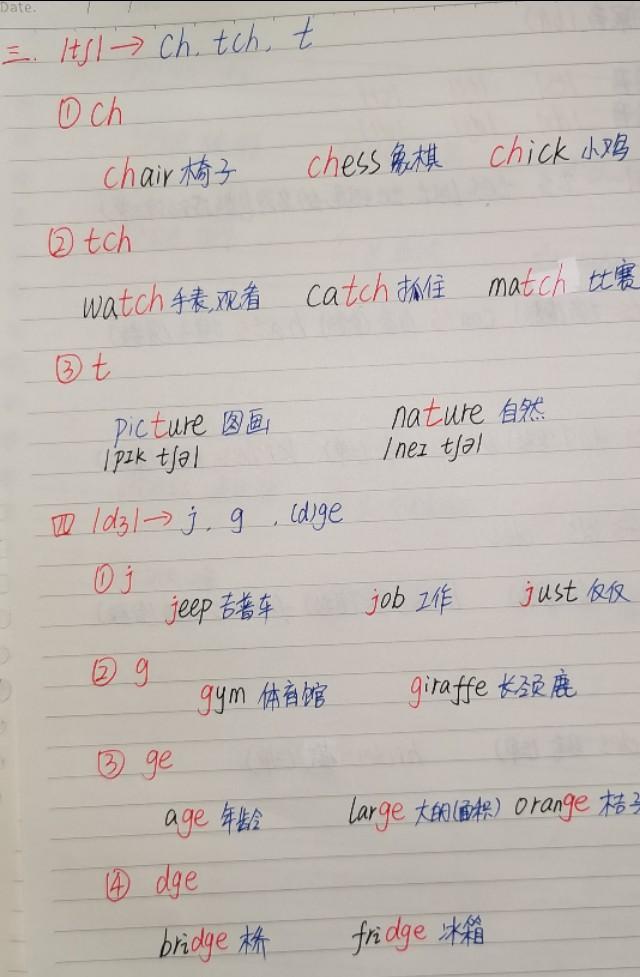 Date. / /
三. /tʃ/ → ch. tch. t
① ch
chair 椅子 chess 象棋 chick 小鸡
② tch
watch 手表,观看 catch 抓住 match 比赛
③ t
picture 图画 nature 自然
/pɪk tʃə/ /neɪ tʃə/
四 /dʒ/ → j. g. (d)ge
① j
jeep 吉普车 job 工作 just 仅仅
② g
gym 体育馆 giraffe 长颈鹿
③ ge
age 年龄 large 大的(面积) orange 桔子
④ dge
bridge 桥 fridge 冰箱